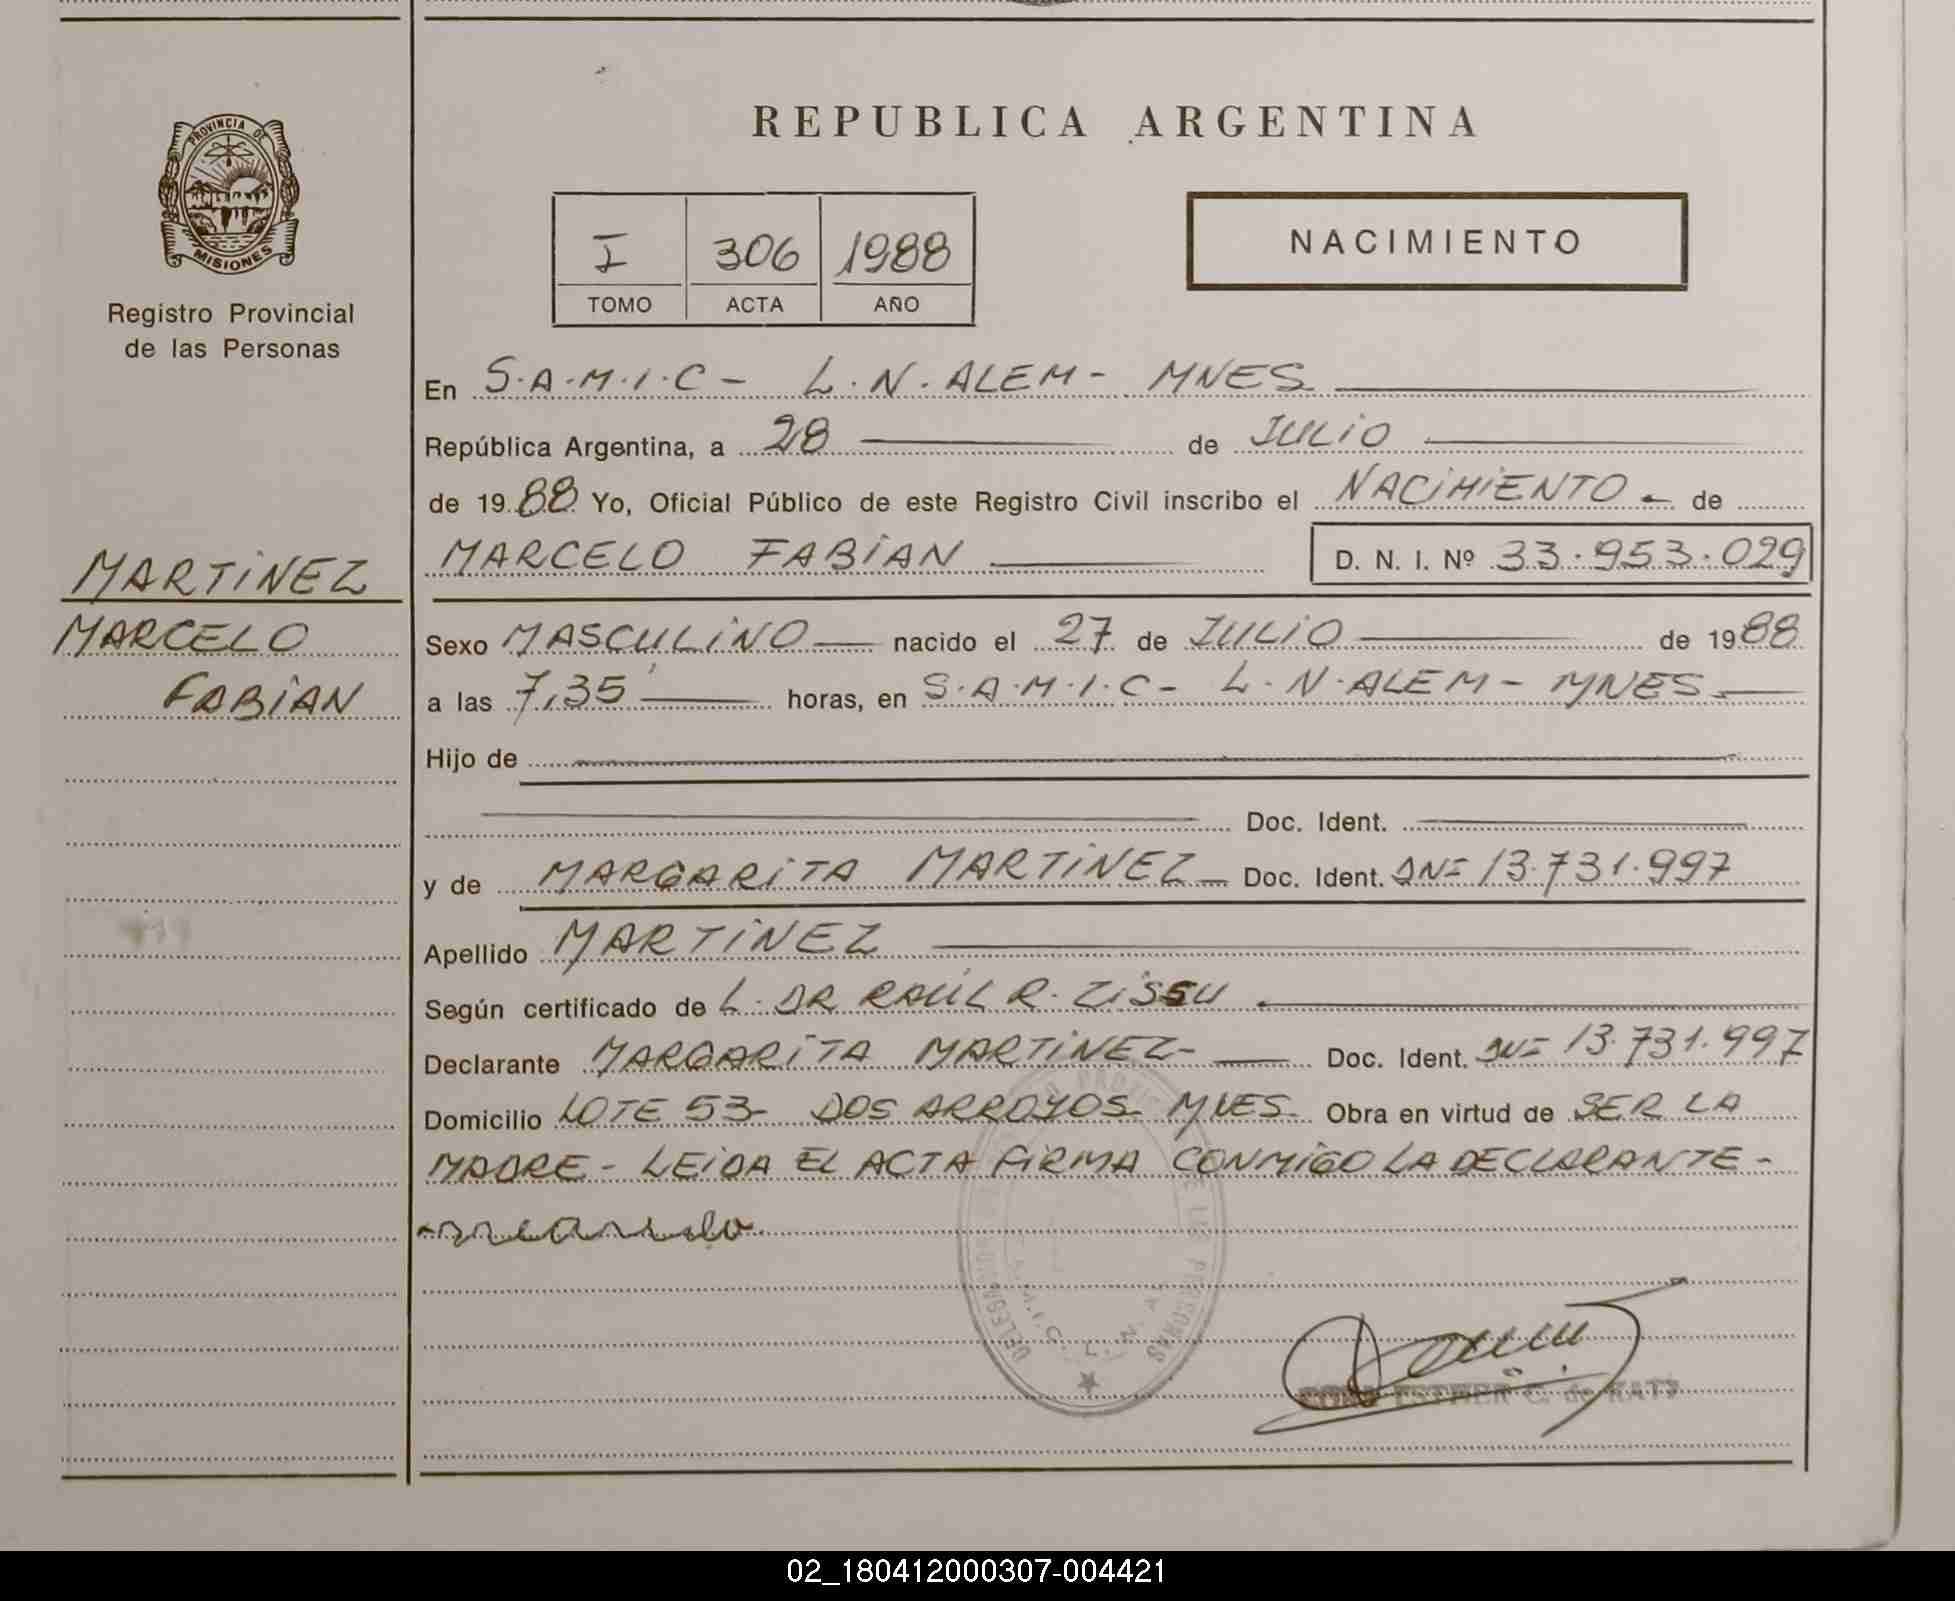 PROVINCIA DE
MISIONES
Registro Provincial
de las Personas
MARTINEZ
MARCELO
FABIAN
REPUBLICA ARGENTINA
I 306 1988
TOMO ACTA AÑO
NACIMIENTO
En S.A.M.I.C - L.N.ALEM - MNES
República Argentina, a 28 de JULIO
de 1988 Yo, Oficial Público de este Registro Civil inscribo el NACIMIENTO - de
MARCELO FABIAN D. N. I. Nº 33.953.029
Sexo MASCULINO nacido el 27 de JULIO de 1988
a las 7,35 horas, en S.A.M.I.C - L.N.ALEM - MNES
Hijo de
Doc. Ident.
y de MARGARITA MARTINEZ Doc. Ident. DN= 13.731.997
Apellido MARTINEZ
Según certificado de L. DR RAÚL R. ZISSU
Declarante MARGARITA MARTINEZ- Doc. Ident. DN= 13.731.997
Domicilio LOTE 53- DOS ARROYOS MNES Obra en virtud de SER LA
MADRE - LEIDA EL ACTA FIRMA CONMIGO LA DECLARANTE -
ESTHER C. de KATZ
02_180412000307-004421